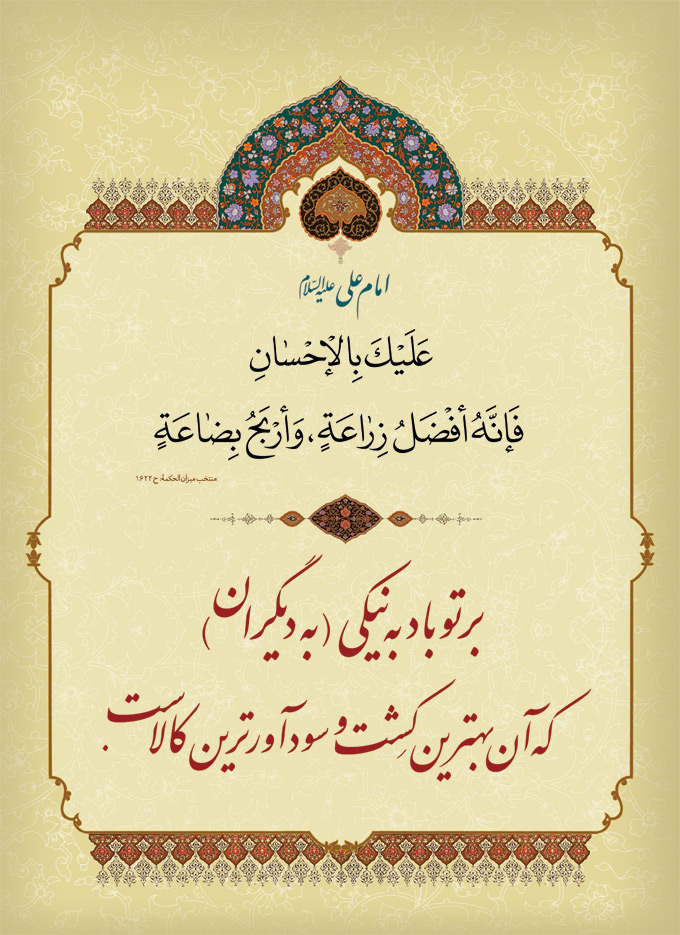 امام علی علیه‌السّلام
عَلَيْكَ بِالْإِحْسٰانِ
فَإنَّهُ أفْضَلُ زِرٰاعَةٍ، وَأرْبَحُ بِضٰاعَةٍ
منتخب میزان الحکمة: ح ۱۶۲۲
بر تو باد به نیکی (به دیگران)
که آن بهترین کِشت و سودآورترین کالاست.